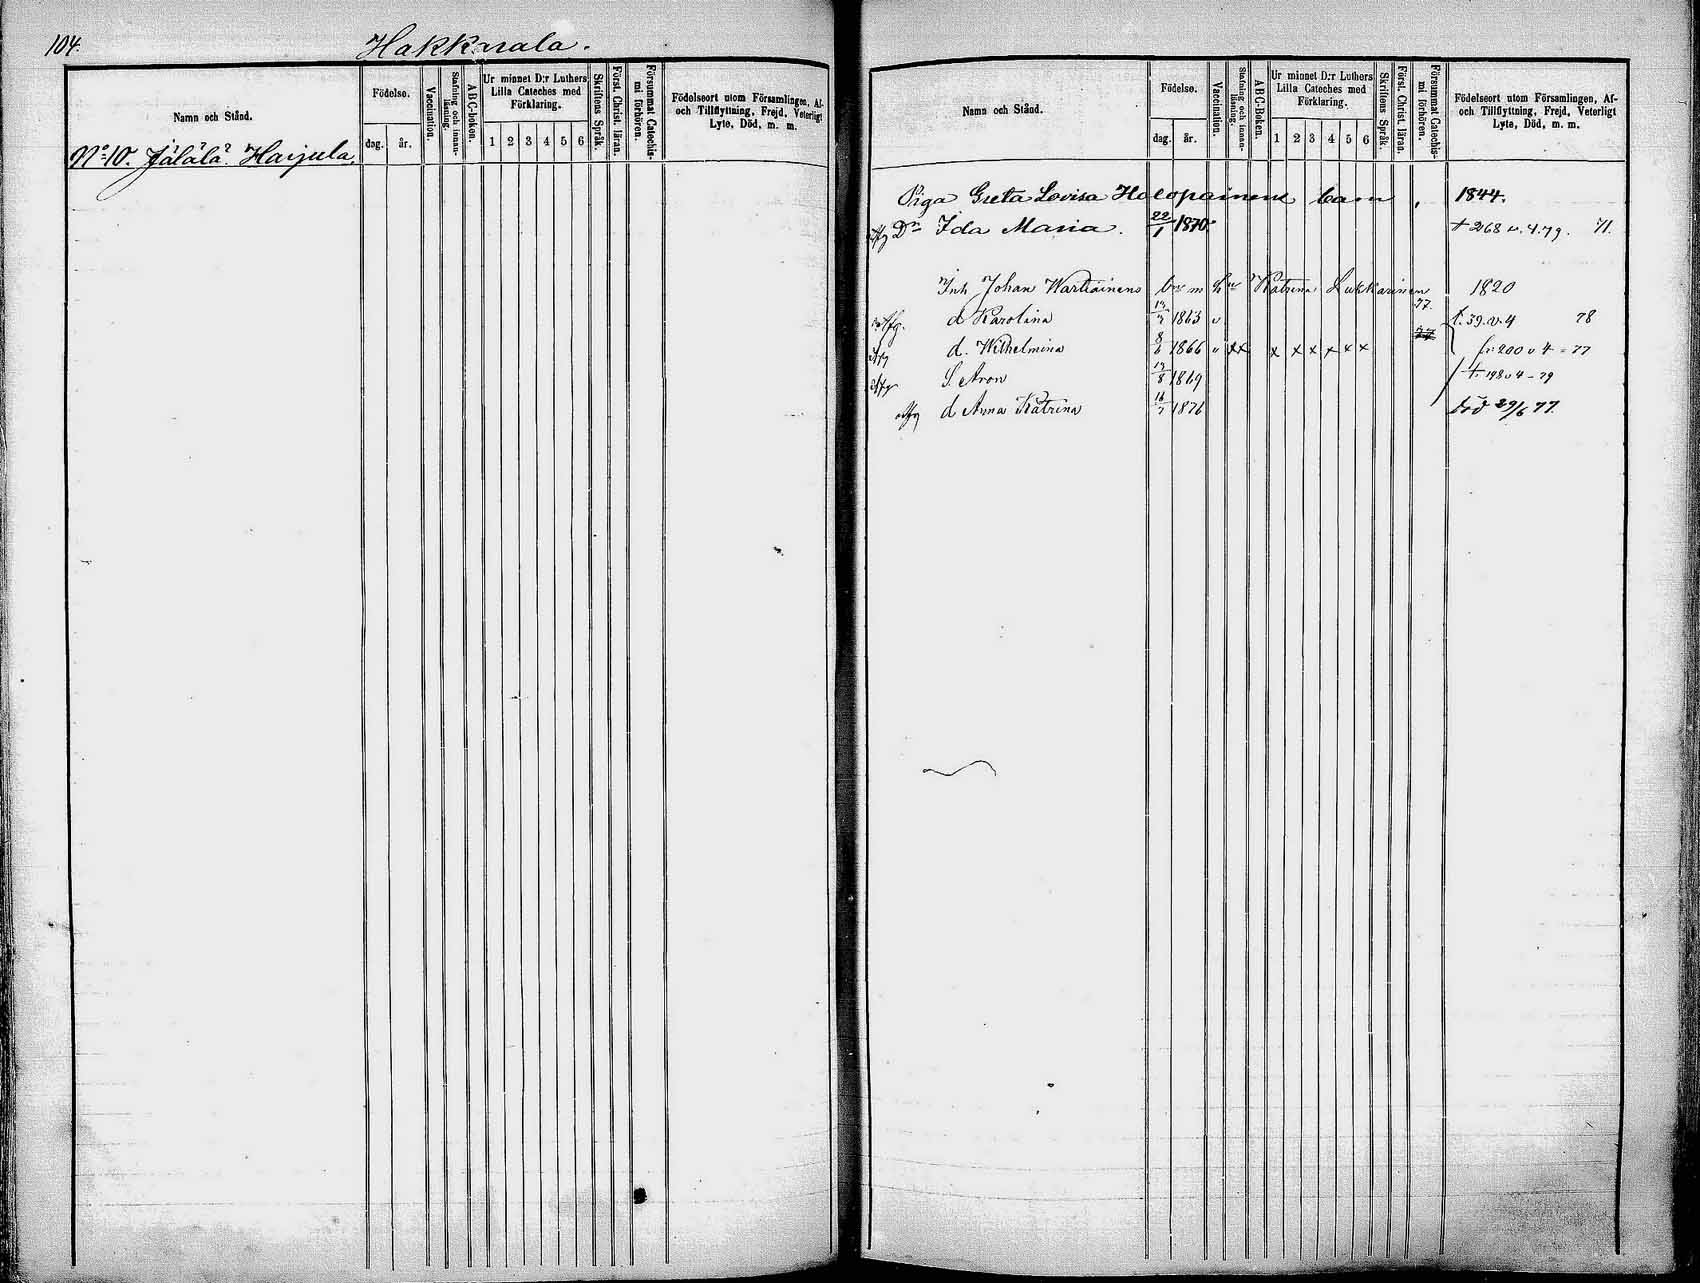 104.
Hakkarala.
Namn och Stånd.
Födelse.
dag. år.
Vaccination.
Stafning och innan-läsning.
ABC-boken.
Ur minnet D:r Luthers
Lilla Cateches med
Förklaring.
1 2 3 4 5 6
Skriftens Språk.
Först. Christ. läran.
Försummat Catechis-
mi förhören.
Födelseort utom Församlingen, Af-
och Tillflyttning, Frejd, Veterligt
Lyte, Död, m. m.
No 10. Jälälä. Harjula.
Namn och Stånd.
Födelse.
dag. år.
Vaccination.
Stafning och innan-läsning.
ABC-Boken.
Ur minnet D:r Luthers
Lilla Cateches med
Förklaring.
1 2 3 4 5 6
Skriftens Språk.
Först. Christ. läran.
Försummat Catechis-
mi förhören.
Födelseort utom Församlingen, Af-
och Tillflyttning, Frejd, Veterligt
Lyte, Död, m. m.
Piga Greta Lovisa Holopainens barn, 1844.
Afg Dr Ida Maria. 22/1 1870. 268 v. 4. 79. 71.
Inh Johan Wartiainens Katrina Lukkarinen 1820
77.
Afg. d Karolina 1863 v t. 39. v. 4 78
Afg d. Wilhelmina 8/6 1866 v x x x x x x x x 200 v 4 = 77
Afg S. Aron 1869 t. 198 v 4 - 79
Afg d Anna Katrina 16/7 1876 död 29/6 77.